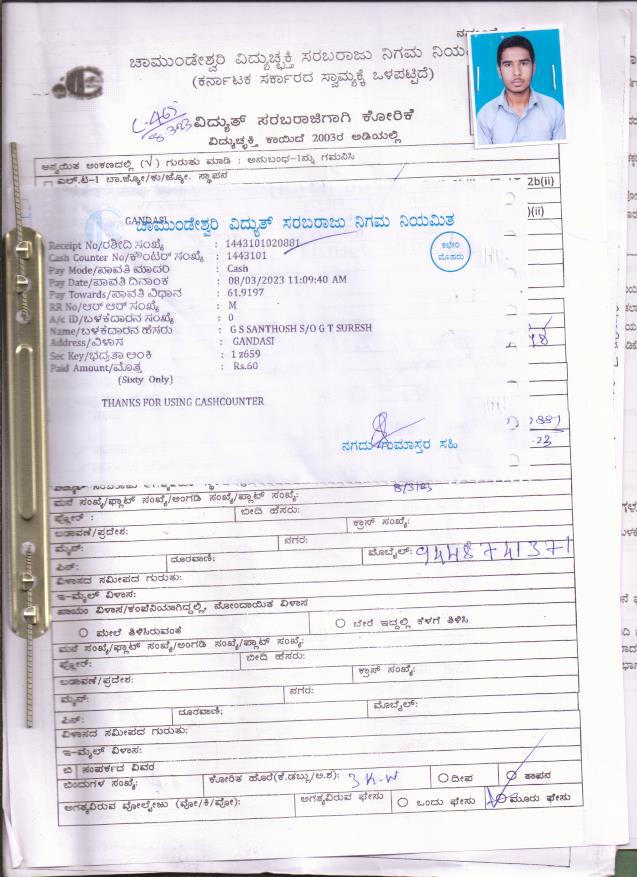 ಚಾಮುಂಡೇಶ್ವರಿ ವಿದ್ಯುಚ್ಛಕ್ತಿ ಸರಬರಾಜು ನಿಗಮ ನಿಯ
(ಕರ್ನಾಟಕ ಸರ್ಕಾರದ ಸ್ವಾಮ್ಯಕ್ಕೆ ಒಳಪಟ್ಟಿದೆ)
ವಿದ್ಯುತ್ ಸರಬರಾಜಿಗಾಗಿ ಕೋರಿಕೆ
ವಿದ್ಯುಚ್ಛಕ್ತಿ ಕಾಯಿದೆ 2003ರ ಅಡಿಯಲ್ಲಿ
ಅನ್ವಯಿತ ಅಂಕಣದಲ್ಲಿ (√) ಗುರುತು ಮಾಡಿ : ಅನುಬಂಧ-1ನ್ನು ಗಮನಿಸಿ
ಎಲ್.ಟಿ-1 ಬಾ.ಜ್ಯೋ/ಕು/ಜ್ಯೋ. ಸ್ಥಾಪನ
2b(ii)
)(ii)
GANDASI
ಚಾಮುಂಡೇಶ್ವರಿ ವಿದ್ಯುತ್ ಸರಬರಾಜು ನಿಗಮ ನಿಯಮಿತ
ಕಛೇರಿ ಮೊಹರು
Receipt No/ರಶೀದಿ ಸಂಖ್ಯೆ : 1443101020881
Cash Counter No/ಕೌಂಟರ್ ಸಂಖ್ಯೆ : 1443101
Pay Mode/ಪಾವತಿ ಮಾದರಿ : Cash
Pay Date/ಪಾವತಿ ದಿನಾಂಕ : 08/03/2023 11:09:40 AM
Pay Towards/ಪಾವತಿ ವಿಧಾನ : 61.9197
RR No/ಆರ್ ಆರ್ ಸಂಖ್ಯೆ : M
A/c ID/ಬಳಕೆದಾರನ ಸಂಖ್ಯೆ : 0
Name/ಬಳಕೆದಾರನ ಹೆಸರು : G S SANTHOSH S/O G T SURESH
Address/ವಿಳಾಸ : GANDASI
Sec Key/ಭದ್ರತಾ ಅಂಕಿ : 1 z659
Paid Amount/ಮೊತ್ತ : Rs.60
(Sixty Only)
THANKS FOR USING CASHCOUNTER
ನಗದು ಗುಮಾಸ್ತರ ಸಹಿ
8/3/23
ಮನೆ ಸಂಖ್ಯೆ/ಫ್ಲಾಟ್ ಸಂಖ್ಯೆ/ಅಂಗಡಿ ಸಂಖ್ಯೆ/ಪ್ಲಾಟ್ ಸಂಖ್ಯೆ:
ಫ್ಲೋರ್ : ಬೀದಿ ಹೆಸರು:
ಬಡಾವಣೆ/ಪ್ರದೇಶ: ಕ್ರಾಸ್ ಸಂಖ್ಯೆ:
ಮೈನ್: ನಗರ:
ಪಿನ್: ದೂರವಾಣಿ: ಮೊಬೈಲ್: 9448741371
ವಿಳಾಸದ ಸಮೀಪದ ಗುರುತು:
ಇ-ಮೈಲ್ ವಿಳಾಸ:
ಖಾಯಂ ವಿಳಾಸ/ಕಂಪೆನಿಯಾಗಿದ್ದಲ್ಲಿ, ನೋಂದಾಯಿತ ವಿಳಾಸ
ಮೇಲೆ ತಿಳಿಸಿರುವಂತೆ ಬೇರೆ ಇದ್ದಲ್ಲಿ ಕೆಳಗೆ ತಿಳಿಸಿ
ಮನೆ ಸಂಖ್ಯೆ/ಫ್ಲಾಟ್ ಸಂಖ್ಯೆ/ಅಂಗಡಿ ಸಂಖ್ಯೆ/ಪ್ಲಾಟ್ ಸಂಖ್ಯೆ:
ಫ್ಲೋರ್: ಬೀದಿ ಹೆಸರು:
ಬಡಾವಣೆ/ಪ್ರದೇಶ: ಕ್ರಾಸ್ ಸಂಖ್ಯೆ:
ಮೈನ್: ನಗರ:
ಪಿನ್: ದೂರವಾಣಿ: ಮೊಬೈಲ್:
ವಿಳಾಸದ ಸಮೀಪದ ಗುರುತು:
ಇ-ಮೈಲ್ ವಿಳಾಸ:
ಬಿ ಸಂಪರ್ಕದ ವಿವರ
ಬಿಂದುಗಳ ಸಂಖ್ಯೆ: ಕೋರಿತ ಹೊರೆ(ಕೆ.ಡಬ್ಲು/ಅ.ಶ): 3 K.W ದೀಪ ತಾಪನ
ಅಗತ್ಯವಿರುವ ವೋಲ್ಟೇಜು (ವೋ/ಕಿ/ವೋ): ಅಗತ್ಯವಿರುವ ಫೇಸು ಒಂದು ಫೇಸು ಮೂರು ಫೇಸು